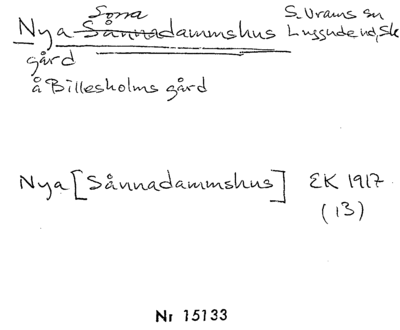 Nya Sånnadammshus S. Vrams sn
Luggude hd, Sk
gård
å Billesholms gård
Nya [Sånnadammshus] EK 1917
(13)
Nr 15133